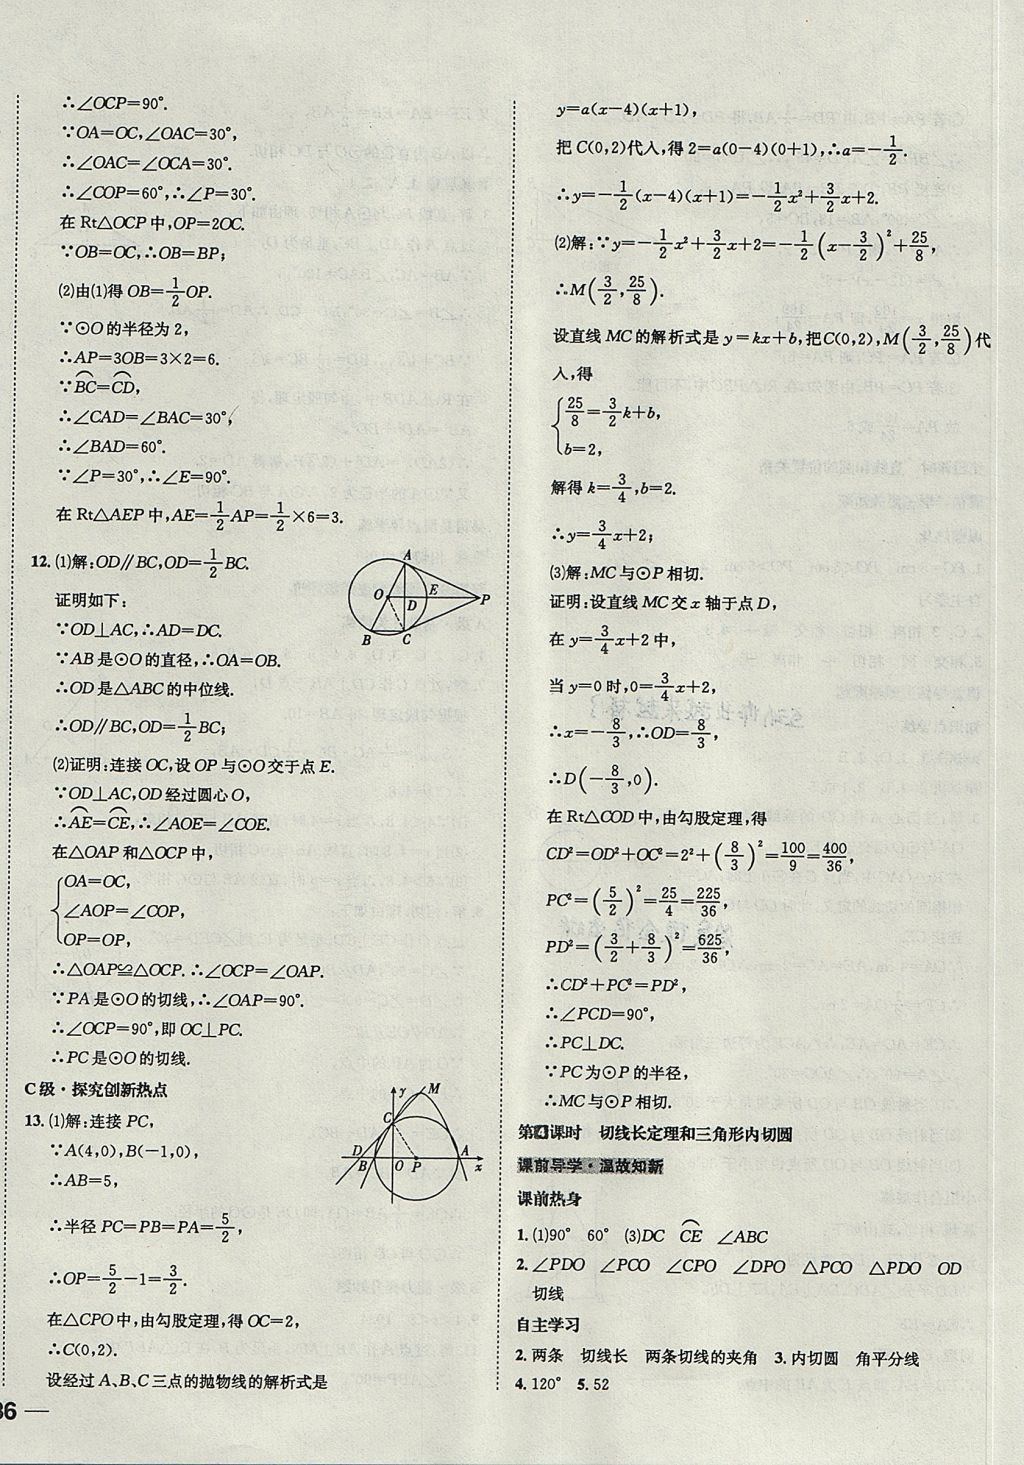 ∴∠OCP=90°.
∵OA=OC,∠OAC=30°,
∴∠OAC=∠OCA=30°.
∴∠COP=60°,∴∠P=30°.
在 Rt△OCP 中,OP=2OC.
∵OB=OC,∴OB=BP;
(2)由(1)得 OB=1/2OP.
∵⊙O的半径为2,
∴AP=3OB=3×2=6.
∵⌒BC=⌒CD,
∴∠CAD=∠BAC=30°,
∴∠BAD=60°.
∵∠P=30°,∴∠E=90°.
在 Rt△AEP 中,AE=1/2AP=1/2×6=3.
12.(1)解:OD∥BC,OD=1/2BC.
证明如下:
∵OD⊥AC,∴AD=DC.
∵AB是⊙O的直径,∴OA=OB.
∴OD是△ABC的中位线.
∴OD∥BC,OD=1/2BC;
(2)证明:连接OC,设OP与⊙O交于点E.
∵OD⊥AC,OD经过圆心O,
∴⌒AE=⌒CE,∴∠AOE=∠COE.
在△OAP和△OCP中,
OA=OC,
∠AOP=∠COP,
OP=OP,
∴△OAP≌△OCP.∴∠OCP=∠OAP.
∵PA是⊙O的切线,∴∠OAP=90°.
∴∠OCP=90°,即OC⊥PC.
∴PC是⊙O的切线.
A
O
D
E
P
B
C
C级·探究创新热点
13.(1)解:连接PC,
∵A(4,0),B(-1,0),
∴AB=5,
∴半径PC=PB=PA=5/2,
∴OP=5/2-1=3/2.
在△CPO中,由勾股定理,得OC=2,
∴C(0,2).
设经过A、B、C三点的抛物线的解析式是
y
M
C
D
B
O
P
A
x
36 —
y=a(x-4)(x+1),
把C(0,2)代入,得2=a(0-4)(0+1),∴a=-1/2.
∴y=-1/2(x-4)(x+1)=-1/2x²+3/2x+2.
(2)解:∵y=-1/2x²+3/2x+2=-1/2(x-3/2)²+25/8,
∴M(3/2,25/8).
设直线MC的解析式是y=kx+b,把C(0,2),M(3/2,25/8)代
入,得
25/8=3/2k+b,
b=2.
解得k=3/4,b=2.
∴y=3/4x+2.
(3)解:MC与⊙P相切.
证明:设直线MC交x轴于点D,
在y=3/4x+2中,
当y=0时,0=3/4x+2,
∴x=-8/3,∴OD=8/3,
∴D(-8/3,0).
在 Rt△COD中,由勾股定理,得
CD²=OD²+OC²=2²+(8/3)²=100/9=400/36,
PC²=(5/2)²=25/4=225/36,
PD²=(3/2+8/3)²=625/36,
∴CD²+PC²=PD²,
∴∠PCD=90°,
∴PC⊥DC.
∵PC为⊙P的半径,
∴MC与⊙P相切.
第4课时 切线长定理和三角形内切圆
课前导学·温故知新
课前热身
1.(1)90° 60° (3)DC ⌒CE ∠ABC
2.∠PDO ∠PCO ∠CPO ∠DPO △PCO △PDO OD
切线
自主学习
2.两条 切线长 两条切线的夹角 3.内切圆 角平分线
4.120° 5.52